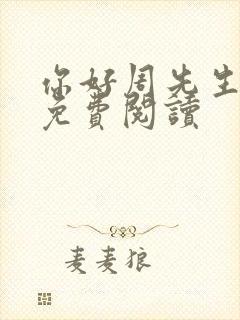 你好周先生
免費閱讀
麦麦狼